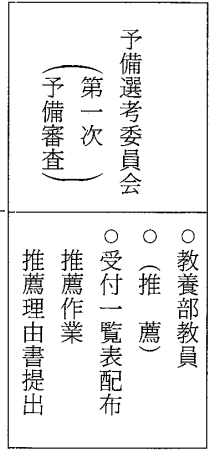 予備選考委員会
（第一次
予備審査）
○教養部教員
○（推　薦）
○受付一覧表配布
推薦作業
推薦理由書提出